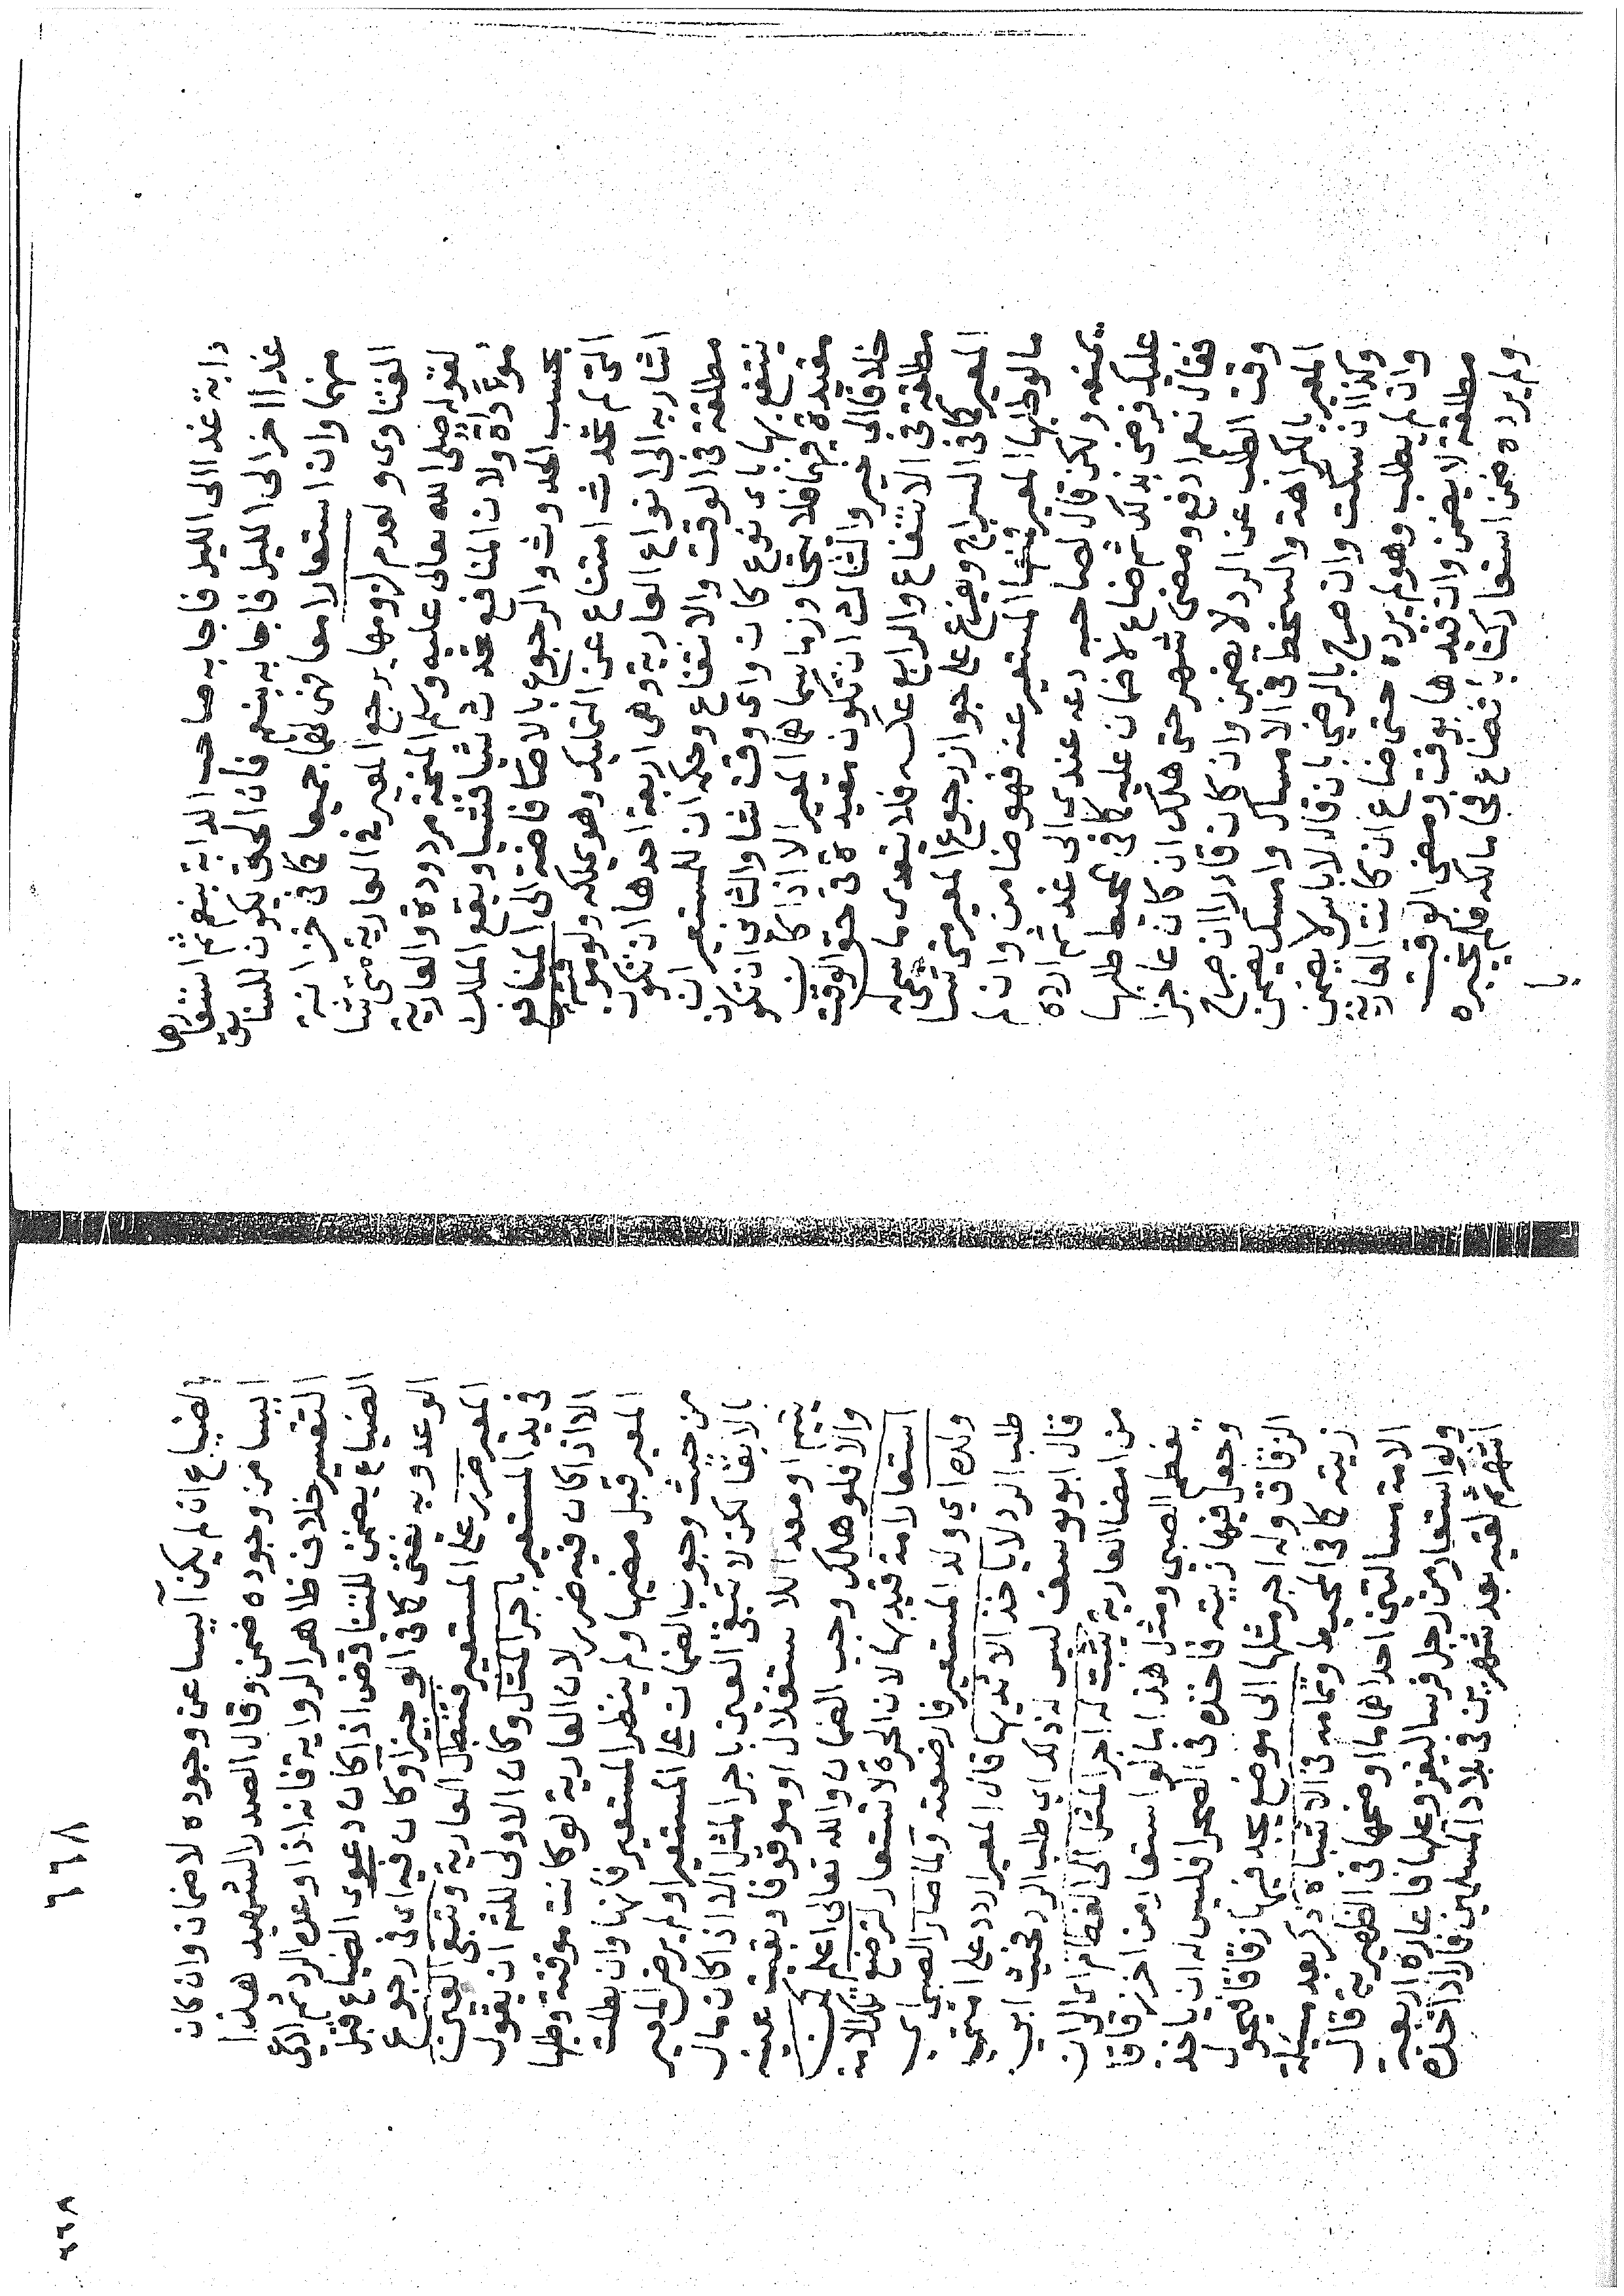 دابة غدا الى الليل فاجابه صاحب الدابة بنعم ثم استعارها
غدا اخر الى الليل فاجابه بنعم فان الحق يكون للسابق
منهما وان استعارا معا فهى لهما جميعا كما فى خزانة
الفتاوى ولعدم لزومها يرجع المعير فى العارية متى شا
لقوله صلى الله تعالى عليه وسلم المنحة مردودة والعارية
مؤداة ولان المنافع تحدث شيا فشيا ويقع الملك
بحسب الحدوث والرجوع بالاضافة الى المنافع
التى لم تحدث امتناع عن التمليك وهو يملكه ولو موقتة
اشار به الى انواع العارية وهى اربعة احدها ان تكون
مطلقة فى الوقت والانتفاع وحكمه ان للمستعير ان
ينتفع بها باى نوع كان واى وقت شا والثانى ان تكون
مقيدة فيهما فلا يتجاوز ما سماه المعير الا اذا كان
خلافا الى خير والثالث ان تكون مقيدة فى حق الوقت
مطلقة فى الانتفاع والرابع عكسه فلا يتعدى ما سماه
المعير كما فى السراج ويفرع على جواز رجوع المعير متى شا
ما لو طلبها المعير فمنعها المستعير عنه فهو ضامن وان لم
يمنعه ولكن قال لصاحبه دعه عندى الى غد ثم ارده
عليك فرضى بذلك ثم ضاع لا ضمان عليه كما فى المحيط طلبها
فقال نعم ادفع ومضى شهر حتى هلك ان كان عاجزا
وقت الطلب عن الرد لا يضمن وان كان قادرا ان صرح
المعير بالكراهة والسخط فى الامساك وامسك يضمن
وكذا ان سكت وان صرح بالرضى بان قال لا باس لا يضمن
وان لم يطلب وهو لم يرده حتى ضاع ان كانت العارية
مطلقة لا يضمن وان قيدها بوقت ومضى الوقت
ولم يرده ضمن استعار كتابا فضاع فجا مالكه فلم يخبره
با
٦٦٨
٦٦٨
لضياع ان لم يكن آيسا عن وجوده لا ضمان وان كان
آيسا من وجوده ضمن وقال الصدر الشهيد هذا
التفسير خلاف ظاهر الرواية فانه اذا وعده الرد ثم ادعى
الضياع يضمن للتناقض اذا كان دعوى الضياع قبل
الوعد وبه نفتى كما فى الوجيز او كان فيه اى فى رجوع
المعير ضرر على المستعير فتبطل العارية وتبقى العين
فى يد المستعير باجر المثل وكان الاولى للشم ان يقول
الا اذا كان فيه ضرر لان العارية لو كانت موقتة وطلبها
المعير قبل مضيها ولم ينظر المستعير فانها وان بطلت
من حيث وجوب الضمان على المستعير او لم يرض المعير
بالابقا لكن لا تبقى العين باجر المثل الا اذا كان مال
يتيم او معدا للاستغلال او موقوفا وبقيت عينه
والا فلو هلك وجب الضمان والله تعالى اعلم كمن
استعار امة قيد بها لان الحرة لا تستعار لترضع تلك الامة
ولده اى ولد المستعير فارضعته ولما صار الصبى اى
طلب الرد لا ياخذ الا ثديها قال المعير اردد على امتى
قال ابو يوسف ليس له ذلك اى طلب الرد فحينئذ ابى
من امضا العارية يثبت له اجر المثل الى الفطام اى الى ان
يفطم الصبى ومثل هذا ما لو استعار من اخر زقاقا
وجعل فيها زيته فاخذه فى الصحرا فليس له ان ياخذ
الزقاق وله اجر مثلها الى موضع يجد فيها زقاقا فيحول
زيته كما فى المحيط وتمامه فى الاشباه ذكر بعد مسئلة
الامة مسالتين احداهما اوضحها فى الظهيرية قال
ولو استعار من رجل فرسا ليغزو عليها فاعاره اربعة
اشهر ثم لقيه بعد شهرين فى بلاد المسلمين فاراد اخذه